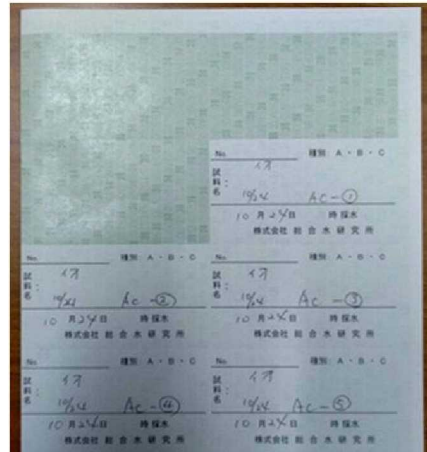 No. 種別 A・B・C
試料名:
10/24 AC-①
10月24日 時採水
株式会社 総合水研究所
No. 種別 A・B・C
試料名:
10/24 AC-②
10月24日 時採水
株式会社 総合水研究所
No. 種別 A・B・C
試料名:
10/24 AC-③
10月24日 時採水
株式会社 総合水研究所
No. 種別 A・B・C
試料名:
10/24 AC-④
10月24日 時採水
株式会社 総合水研究所
No. 種別 A・B・C
試料名:
10/24 AC-⑤
10月24日 時採水
株式会社 総合水研究所